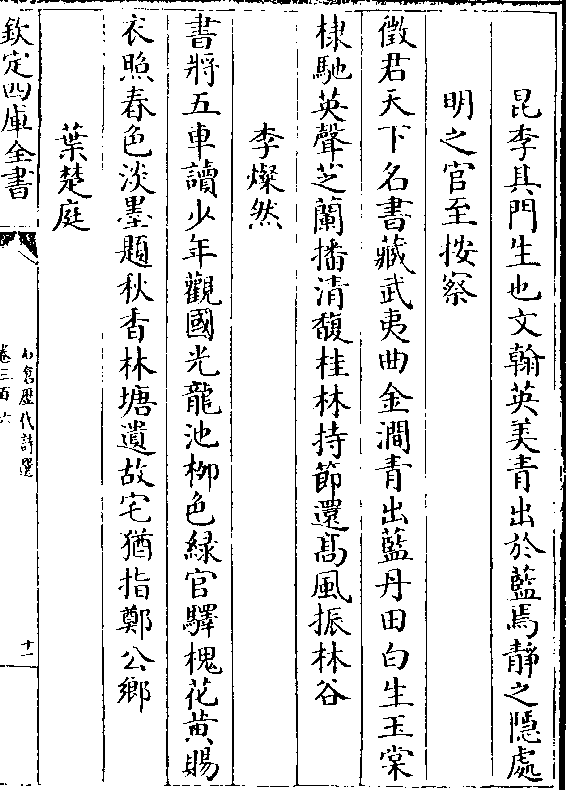 昆李其門生也文翰英美青出於藍焉靜之隱處
明之官至按察
徵君天下名書藏武夷曲金澗青出藍丹田白生玉棠
棣馳英聲芝蘭播清馥桂林持節還髙風振林谷
李燦然
書將五車讀少年觀國光龍池栁色緑官驛槐花黄賜
衣照春色淡墨題秋香林塘遺故宅猶指鄭公鄉
葉楚庭
欽定四庫全書
石倉歷代詩選
卷三百六
十一